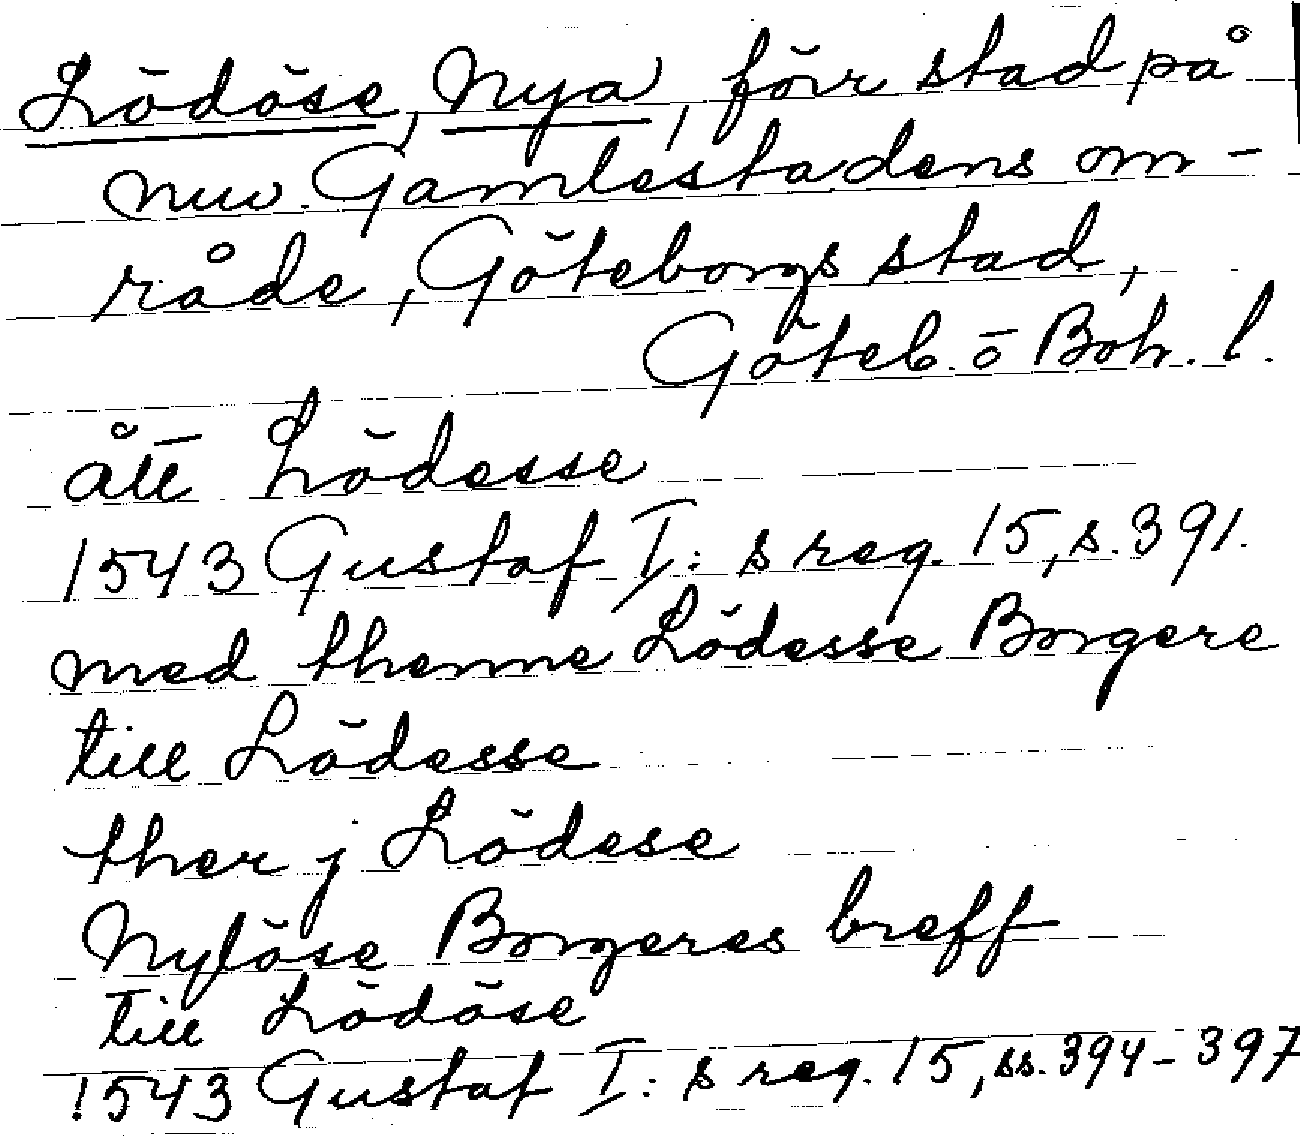 Lödöse, Nya, förr stad på
nuv. Gamlestadens om-
råde, Göteborgs stad,
Göteb. o Boh. l.
ått Lödesse
1543 Gustaf I:s reg. 15, s. 391.
med thenne Lödesse Borgere
till Lödesse
ther j Lödese
Nylöse Borgeres breff
till Lödöse
1543 Gustaf I:s reg. 15, ss. 394-397